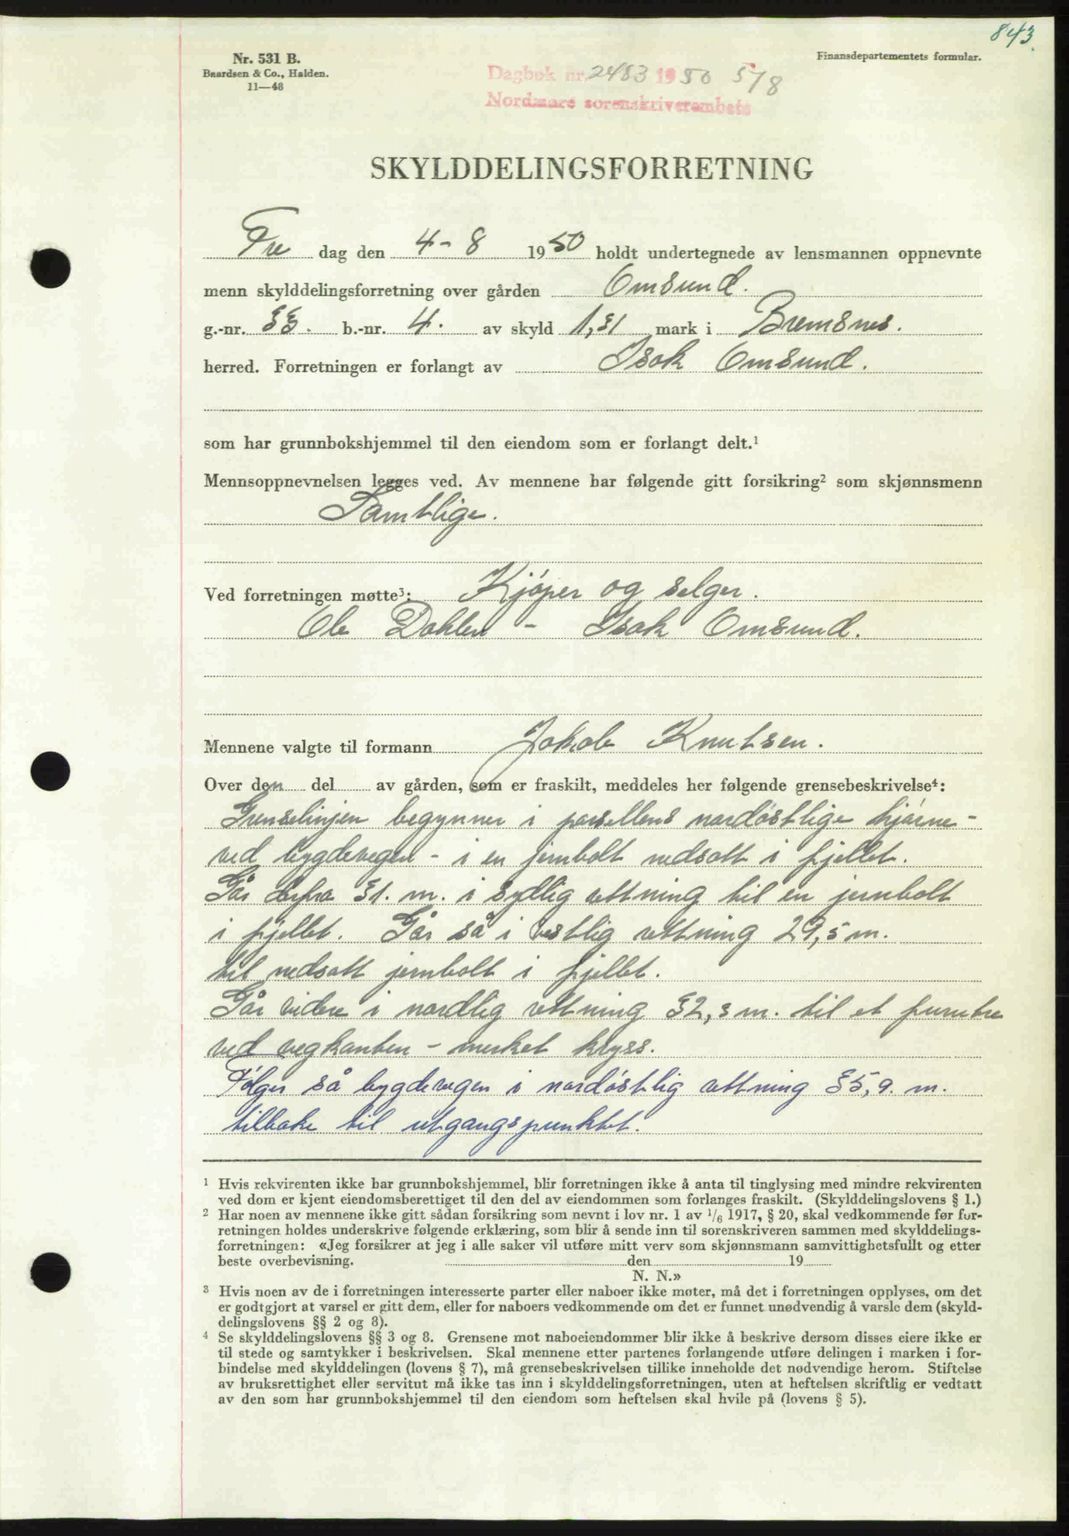 843.
Nr. 531 B.
Baardsen & Co., Halden.
11—48
Finansdepartementets formular.
Dagbok nr. 2483 1950 5/8
Nordmøre sorenskriverembete
SKYLDDELINGSFORRETNING
Fre dag den 4-8 1950 holdt undertegnede av lensmannen oppnevnte
menn skylddelingsforretning over gården Omsund.
g.-nr. 33. b.-nr. 4. av skyld 1,31 mark i Bremsnes.
herred. Forretningen er forlangt av Isak Omsund.
som har grunnbokshjemmel til den eiendom som er forlangt delt.¹
Mennsoppnevnelsen legges ved. Av mennene har følgende gitt forsikring² som skjønnsmenn
Samtlige.
Ved forretningen møtte³: Kjøper og selger.
Ole Dahlen - Isak Omsund.
Mennene valgte til formann Jakob Knutsen.
Over den del av gården, som er fraskilt, meddeles her følgende grensebeskrivelse⁴:
Grenselinjen begynner i parsellens nordøstlige hjørne-
ved bygdevegen - i en jernbolt nedsatt i fjellet.
Går derfra 31. m. i sydlig rettning til en jernbolt
i fjellet. Går så i vestlig rettning 29,5 m.
til nedsatt jernbolt i fjellet.
Går videre i nordlig rettning 32,3 m. til et furutre
ved vegkanten - merket kryss.
Følger så bygdevegen i nordøstlig rettning 35,9. m.
tilbake til utgangspunktet.
¹ Hvis rekvirenten ikke har grunnbokshjemmel, blir forretningen ikke å anta til tinglysing med mindre rekvirenten
ved dom er kjent eiendomsberettiget til den del av eiendommen som forlanges fraskilt. (Skylddelingslovens § 1.)
² Har noen av mennene ikke gitt sådan forsikring som nevnt i lov nr. 1 av 1/6 1917, § 20, skal vedkommende før for-
retningen holdes underskrive følgende erklæring, som blir å sende inn til sorenskriveren sammen med skylddelings-
forretningen: «Jeg forsikrer at jeg i alle saker vil utføre mitt verv som skjønnsmann samvittighetsfullt og etter
beste overbevisning. den 19
N. N.»
³ Hvis noen av de i forretningen interesserte parter eller naboer ikke møter, må det i forretningen opplyses, om det
er godtgjort at varsel er gitt dem, eller for naboers vedkommende om det er funnet unødvendig å varsle dem (skyld-
delingslovens §§ 2 og 3).
⁴ Se skylddelingslovens §§ 3 og 8. Grensene mot naboeiendommer blir ikke å beskrive dersom disses eiere ikke er
til stede og samtykker i beskrivelsen. Skal mennene etter partenes forlangende utføre delingen i marken i for-
bindelse med skylddelingen (lovens § 7), må grensebeskrivelsen tillike inneholde det nødvendige herom. Stiftelse
av bruksrettighet eller servitut må ikke tas inn i skylddelingsforretningen, uten at heftelsen skriftlig er vedtatt
av den som har grunnbokshjemmel til den eiendom som heftelsen skal hvile på (lovens § 5).